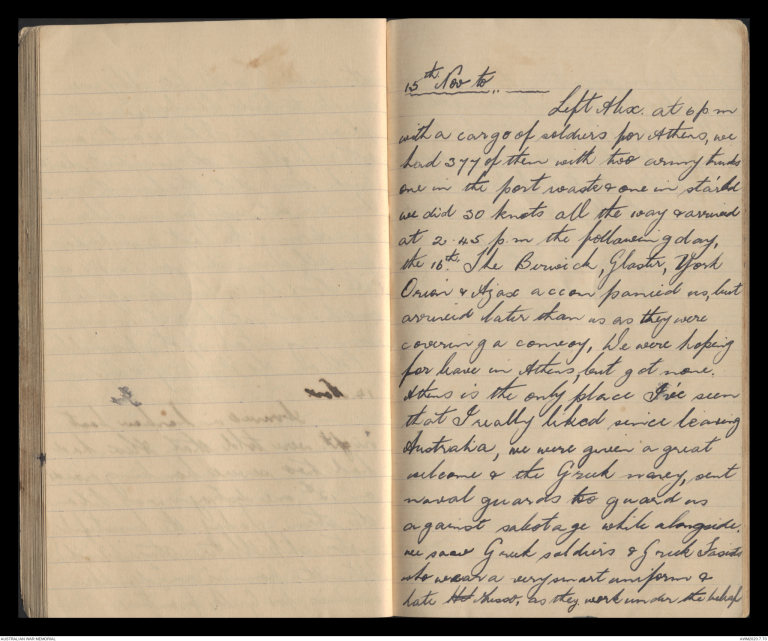 15th Nov to..
Left Alex. at 6 p m
with a cargo of soldiers for Athens, we
had 377 of them with two army trucks
one in the port waste & one in starbd
we did 30 knots all the way & arrived
at 2.45 p.m the following day,
the 16th. The Berwick, Glaster, York
Orion & Ajax accompanied us, but
arrived later than us as they were
covering a convoy, We were hoping
for leave in Athens, but got none.
Athens is the only place I've seen
that I really liked since leaving
Australia, we were given a great
welcome & the Greek navey, sent
naval guards to guard us
against sabotage while alongside.
we saw Greek soldiers & Greek
who wear a very smart uniform &
hate as they work under the
AUSTRALIAN WAR MEMORIAL